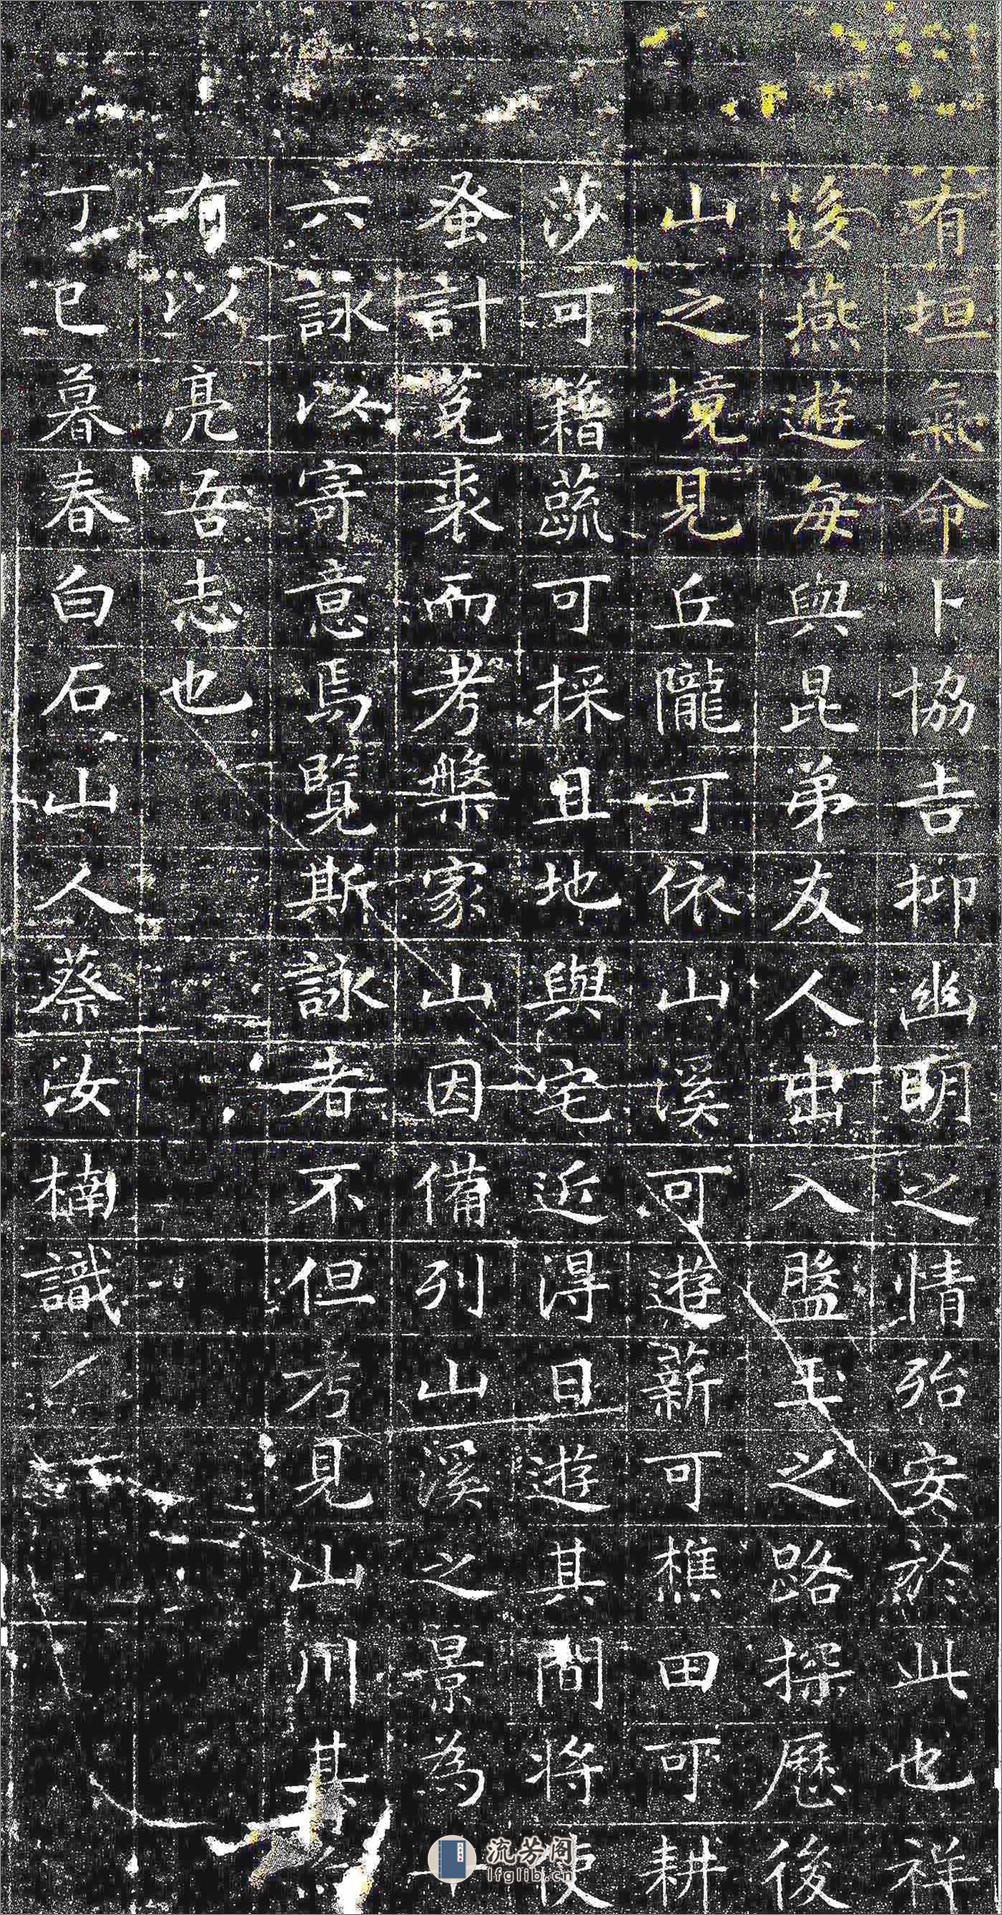 有垣氣命卜協吉抑幽明之情殆安於此也祥
後燕遊每與昆弟友人出入盤玉之路探歷後
山之境見丘隴可依山溪可遊薪可樵田可耕
莎可籍蔬可採且地與宅近得日遊其間將使
蚤計菟裘而考槃家山因備列山溪之景為
六詠以寄意焉覽斯詠者不但考見山川其
有以亮吾志也
丁巳暮春白石山人蔡汝楠識
流芳阁
lfglib.cn